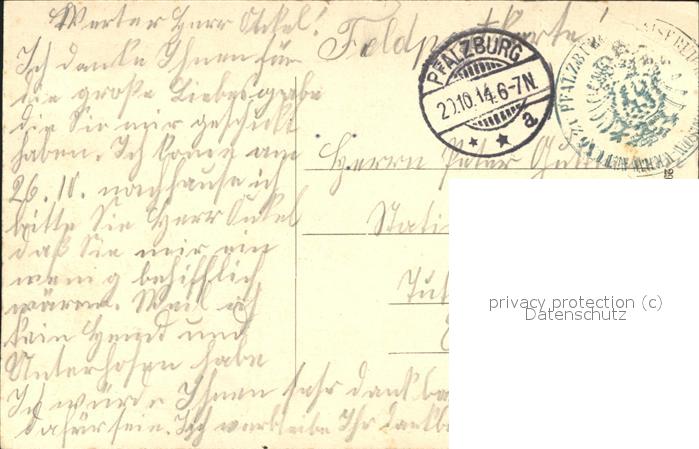 Werter Herr Onkel!
Ich danke Ihnen für
die große Liebesgabe
die Sie mir geschickt
haben. Ich komme am
26.10. nachhause ich
bitte Sie Herr Onkel
daß Sie mir ein
wenig behilflich
wären. Weil ich
kein Hemd und
Unterhosen habe
Ich würde Ihnen sehr dankba
dafür sein. Ich verbleibe Ihr dankb
Feldpostkarte!
PFALZBURG
20.10.14.6-7N.
* * a
PFALZBURG
Herrn Peter
Stati
privacy protection (c)
Datenschutz